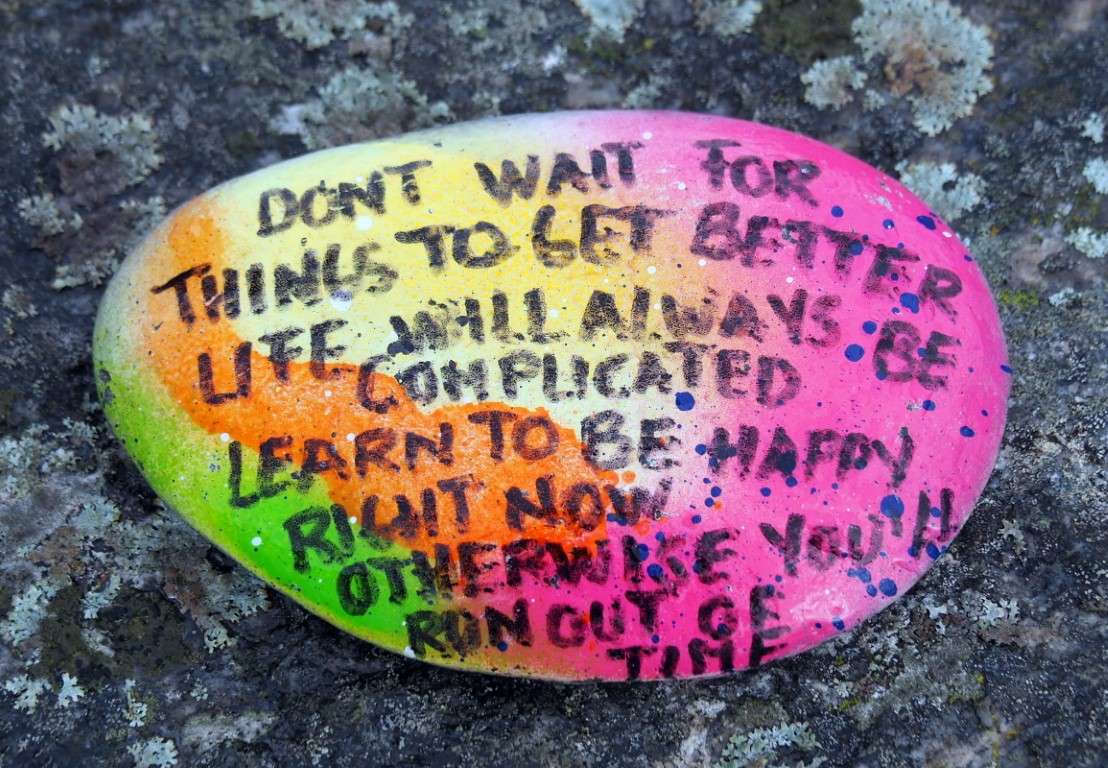 DONT WAIT FOR
THINGS TO GET BETTER
LIFE WILL ALWAYS BE
COMPLICATED
LEARN TO BE HAPPY
RIGHT NOW
OTHERWISE YOU'll
RUN OUT OF
TIME